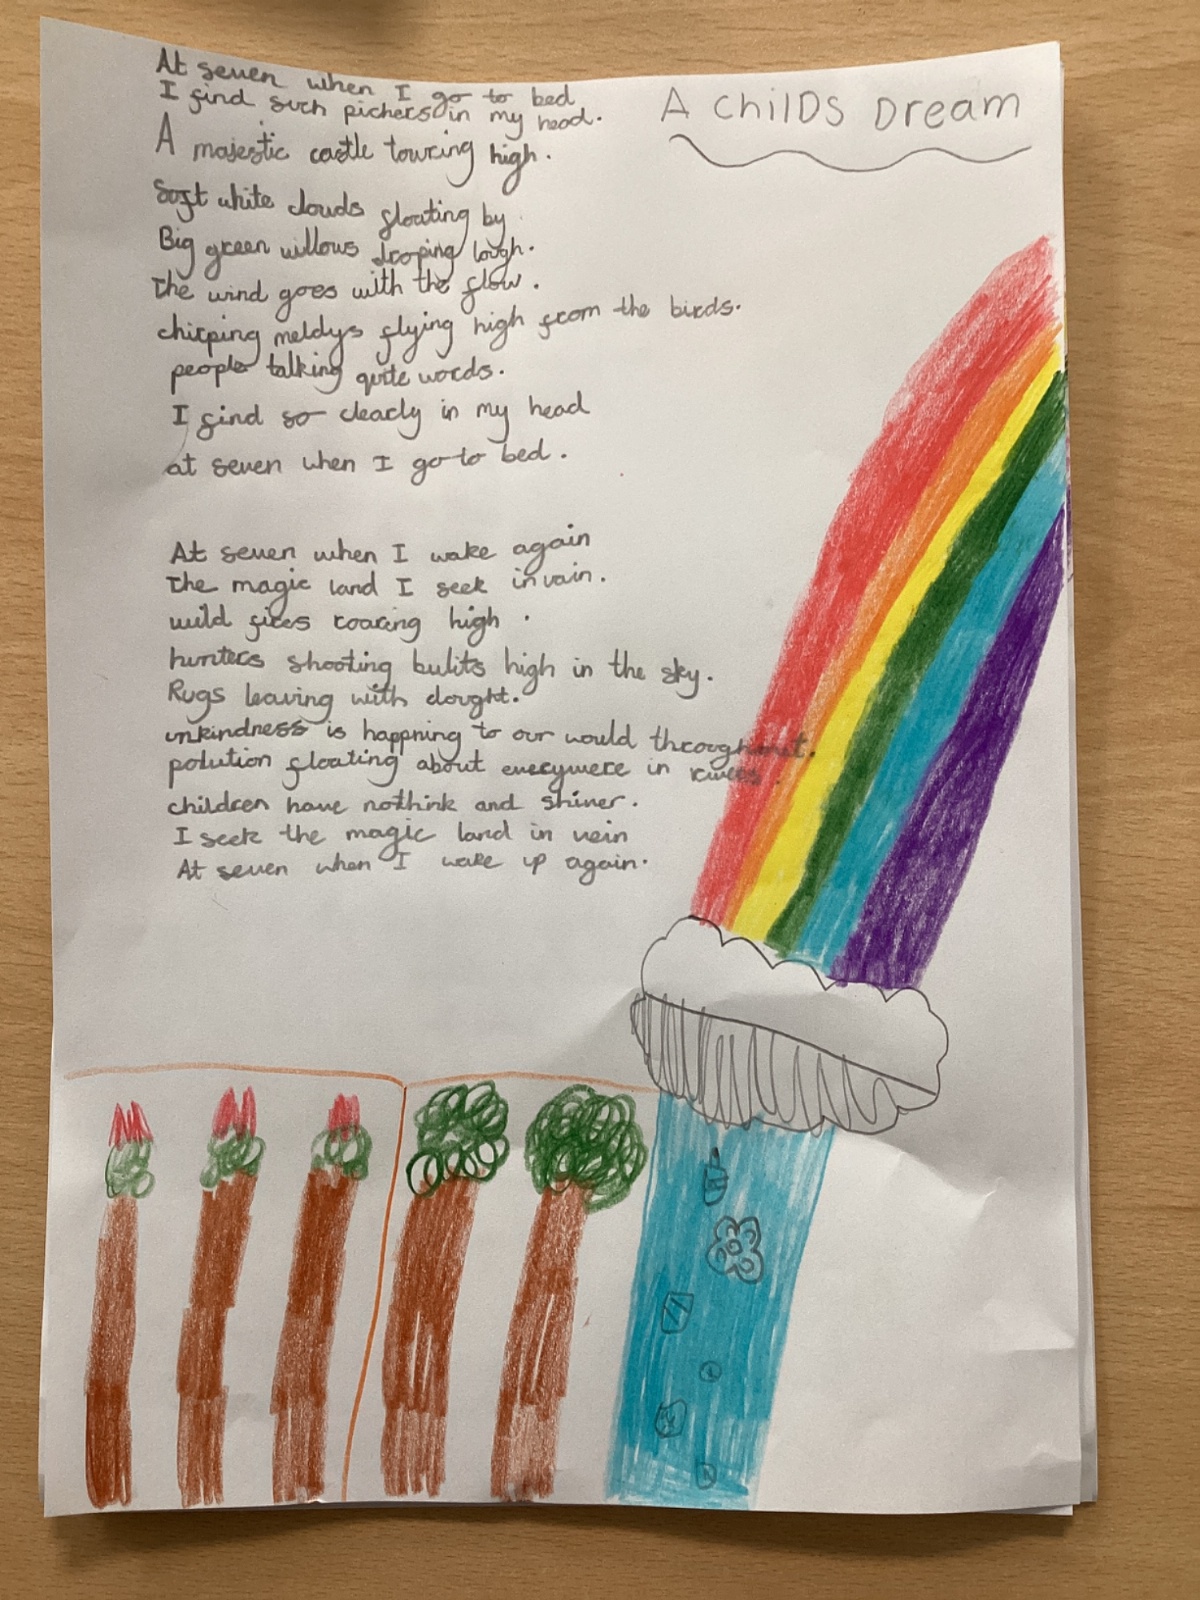 A Childs Dream
At seven when I go to bed
I find such pichers in my head.
A majestic castle towring high.
Soft white clouds floating by.
Big green willows droping lough.
The wind goes with the flow.
chirping meldys flying high from the birds.
people talking quite words.
I find so clearly in my head
at seven when I go to bed.
At seven when I wake again
The magic land I seek in vain.
wild fires roaring high.
hunters shooting bulits high in the sky.
Rugs leaving with dought.
unkindness is happning to our would throughout.
polution floating about everywere in rivers.
children have nothink and shiver.
I seek the magic land in vein
At seven when I wake up again.